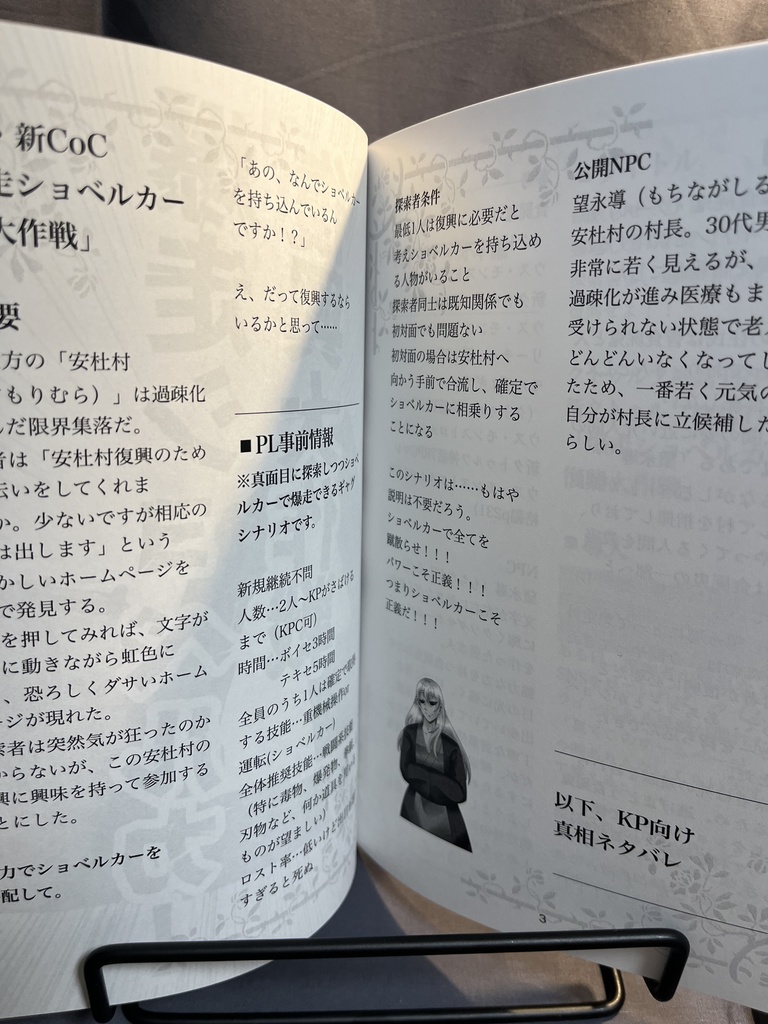 新CoC
走ショベルカー
大作戦」
要
方の「安杜村
もりむら）」は過疎化
んだ限界集落だ。
者は「安杜村復興のため
伝いをしてくれま
か。少ないですが相応の
は出します」という
かしいホームページを
で発見する。
を押してみれば、文字が
に動きながら虹色に
、恐ろしくダサいホーム
ージが現れた。
索者は突然気が狂ったのか
からないが、この安杜村の
興に興味を持って参加する
とにした。
力でショベルカーを
配して。
「あの、なんでショベルカー
を持ち込んでいるん
ですか！？」
え、だって復興するなら
いるかと思って……
■PL事前情報
※真面目に探索しつつショベ
ルカーで爆走できるギャグ
シナリオです。
新規継続不問
人数…2人〜KPがさばける
まで（KPC可）
時間…ボイセ3時間
テキセ5時間
全員のうち1人は確定で
する技能…重機械操作or
運転(ショベルカー)
全体推奨技能…戦闘系技能
（特に毒物、爆発物、
刃物など、何か道具を
ものが望ましい）
ロスト率…低いけど
すぎると死ぬ
探索者条件
最低1人は復興に必要だと
考えショベルカーを持ち込め
る人物がいること
探索者同士は既知関係でも
初対面でも問題ない
初対面の場合は安杜村へ
向かう手前で合流し、確定で
ショベルカーに相乗りする
ことになる
このシナリオは……もはや
説明は不要だろう。
ショベルカーで全てを
蹴散らせ！！！
パワーこそ正義！！！
つまりショベルカーこそ
正義だ！！！
3
公開NPC
望永導（もちながしる
安杜村の村長。30代男
非常に若く見えるが、
過疎化が進み医療もま
受けられない状態で老
どんどんいなくなってし
たため、一番若く元気の
自分が村長に立候補した
らしい。
以下、KP向け
真相ネタバレ